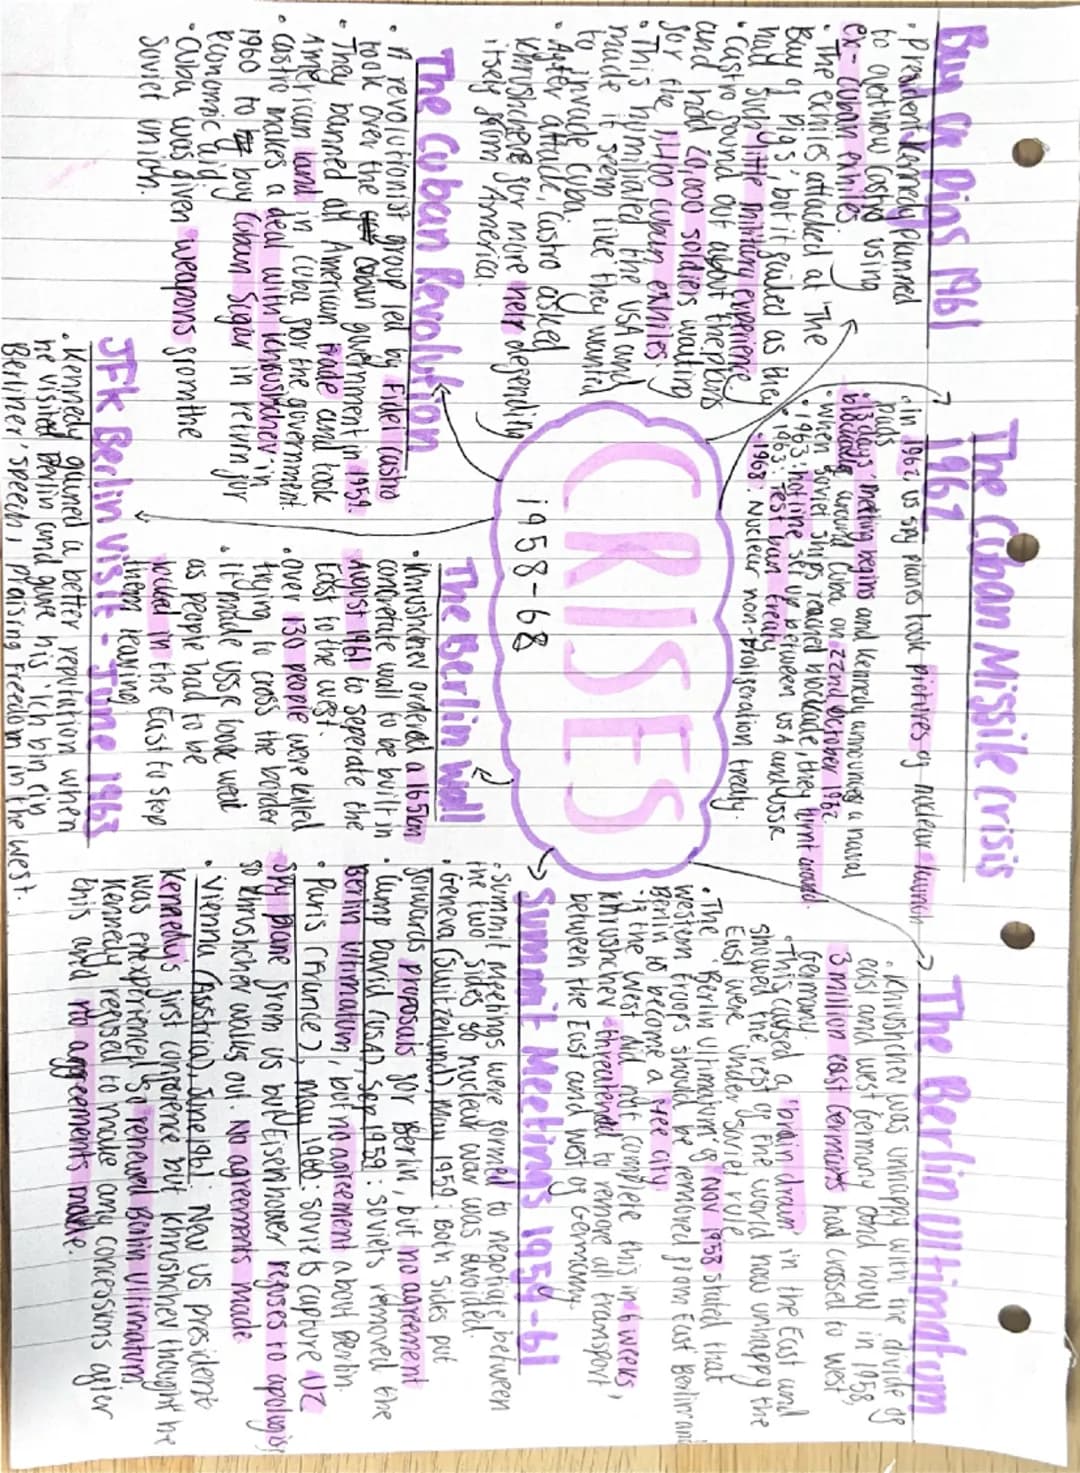 CRISES
1958-68
Bay of Pigs 1961
• President Kennedy planned
to overthrow Castro using
ex-Cuban exhiles
• The exhiles attacked at 'The
Bay of Pigs', but it failed as they
had such little military experience
• Castro found out about the plans
and had 20,000 soldiers waiting
for the 1,400 cuban exhiles
• This humiliated the USA and
made it seem like they wanted
to invade Cuba.
• After attack, Castro asked
Khrushchev for more help defending
itself from America.
The Cuban Missile Crisis
1962
• in 1962, us spy planes took pictures of nuclear launch
pads
• '13 days' meeting begins and Kennedy announces a naval
blockade around Cuba on 22nd October 1962.
• when Soviet ships reached blockade, they turnt around.
• 1963: hotline set up between USA and USSR
• 1963: Test ban treaty
• 1968: Nuclear non-proliferation treaty.
The Berlin Ultimatum
• Khrushchev was unhappy with the divide of
east and west Germany and how in 1958,
3 million east Germans had crossed to west
Germany.
• This caused a 'brain drain' in the East and
showed the rest of the world how unhappy the
East were under Soviet rule
• The 'Berlin Ultimatum' of Nov 1958 stated that
western troops should be removed from East Berlin and
Berlin to become a 'free city'
• if the West did not complete this in 6 weeks,
Khrushchev threatended to remove all transport
between the East and west of Germany.
The Cuban Revolution
• A revolutionist group led by Fidel Castro
took over the Cuban government in 1959.
• They banned all American trade and took
American land in Cuba for the government
• Castro makes a deal with Khrushchev in
1960 to buy Cuban Sugar in return for
economic aid
• Cuba was given weapons from the
Soviet union.
The Berlin Wall
• Khrushchev ordered a 165km
concrete wall to be built in
August 1961 to seperate the
East to the west.
• over 130 people were killed
trying to cross the border
• it made USSR look weak
as people had to be
locked in the East to stop
them leaving.
Summit Meetings 1959-61
• Summit meetings were formed to negotiate between
the two sides so nuclear war was avoided.
• Geneva (Switzerland) May 1959: Both sides put
forwards proposals for Berlin, but no agreement
• Camp David (USA), Sep 1959: soviets removed the
Berlin Ultimatum, but no agreement about Berlin.
• Paris (France), May 1960: soviets capture U2
spy plane from us but Eisenhower refuses to apologise
so Khrushchev walks out. No agreements made
• Vienna (Austria), June 1961: New us president
Kennedy's first conference but Khrushchev thought he
was inexperienced so renewed Berlin Ultimatum
Kennedy refused to make any concessions after
this and no agreements made.
JFK Berlin Visit - June 1963
• Kennedy gained a better reputation when
he visited Berlin and gave his 'ich bin ein
Berliner' speech, praising freedom in the west.